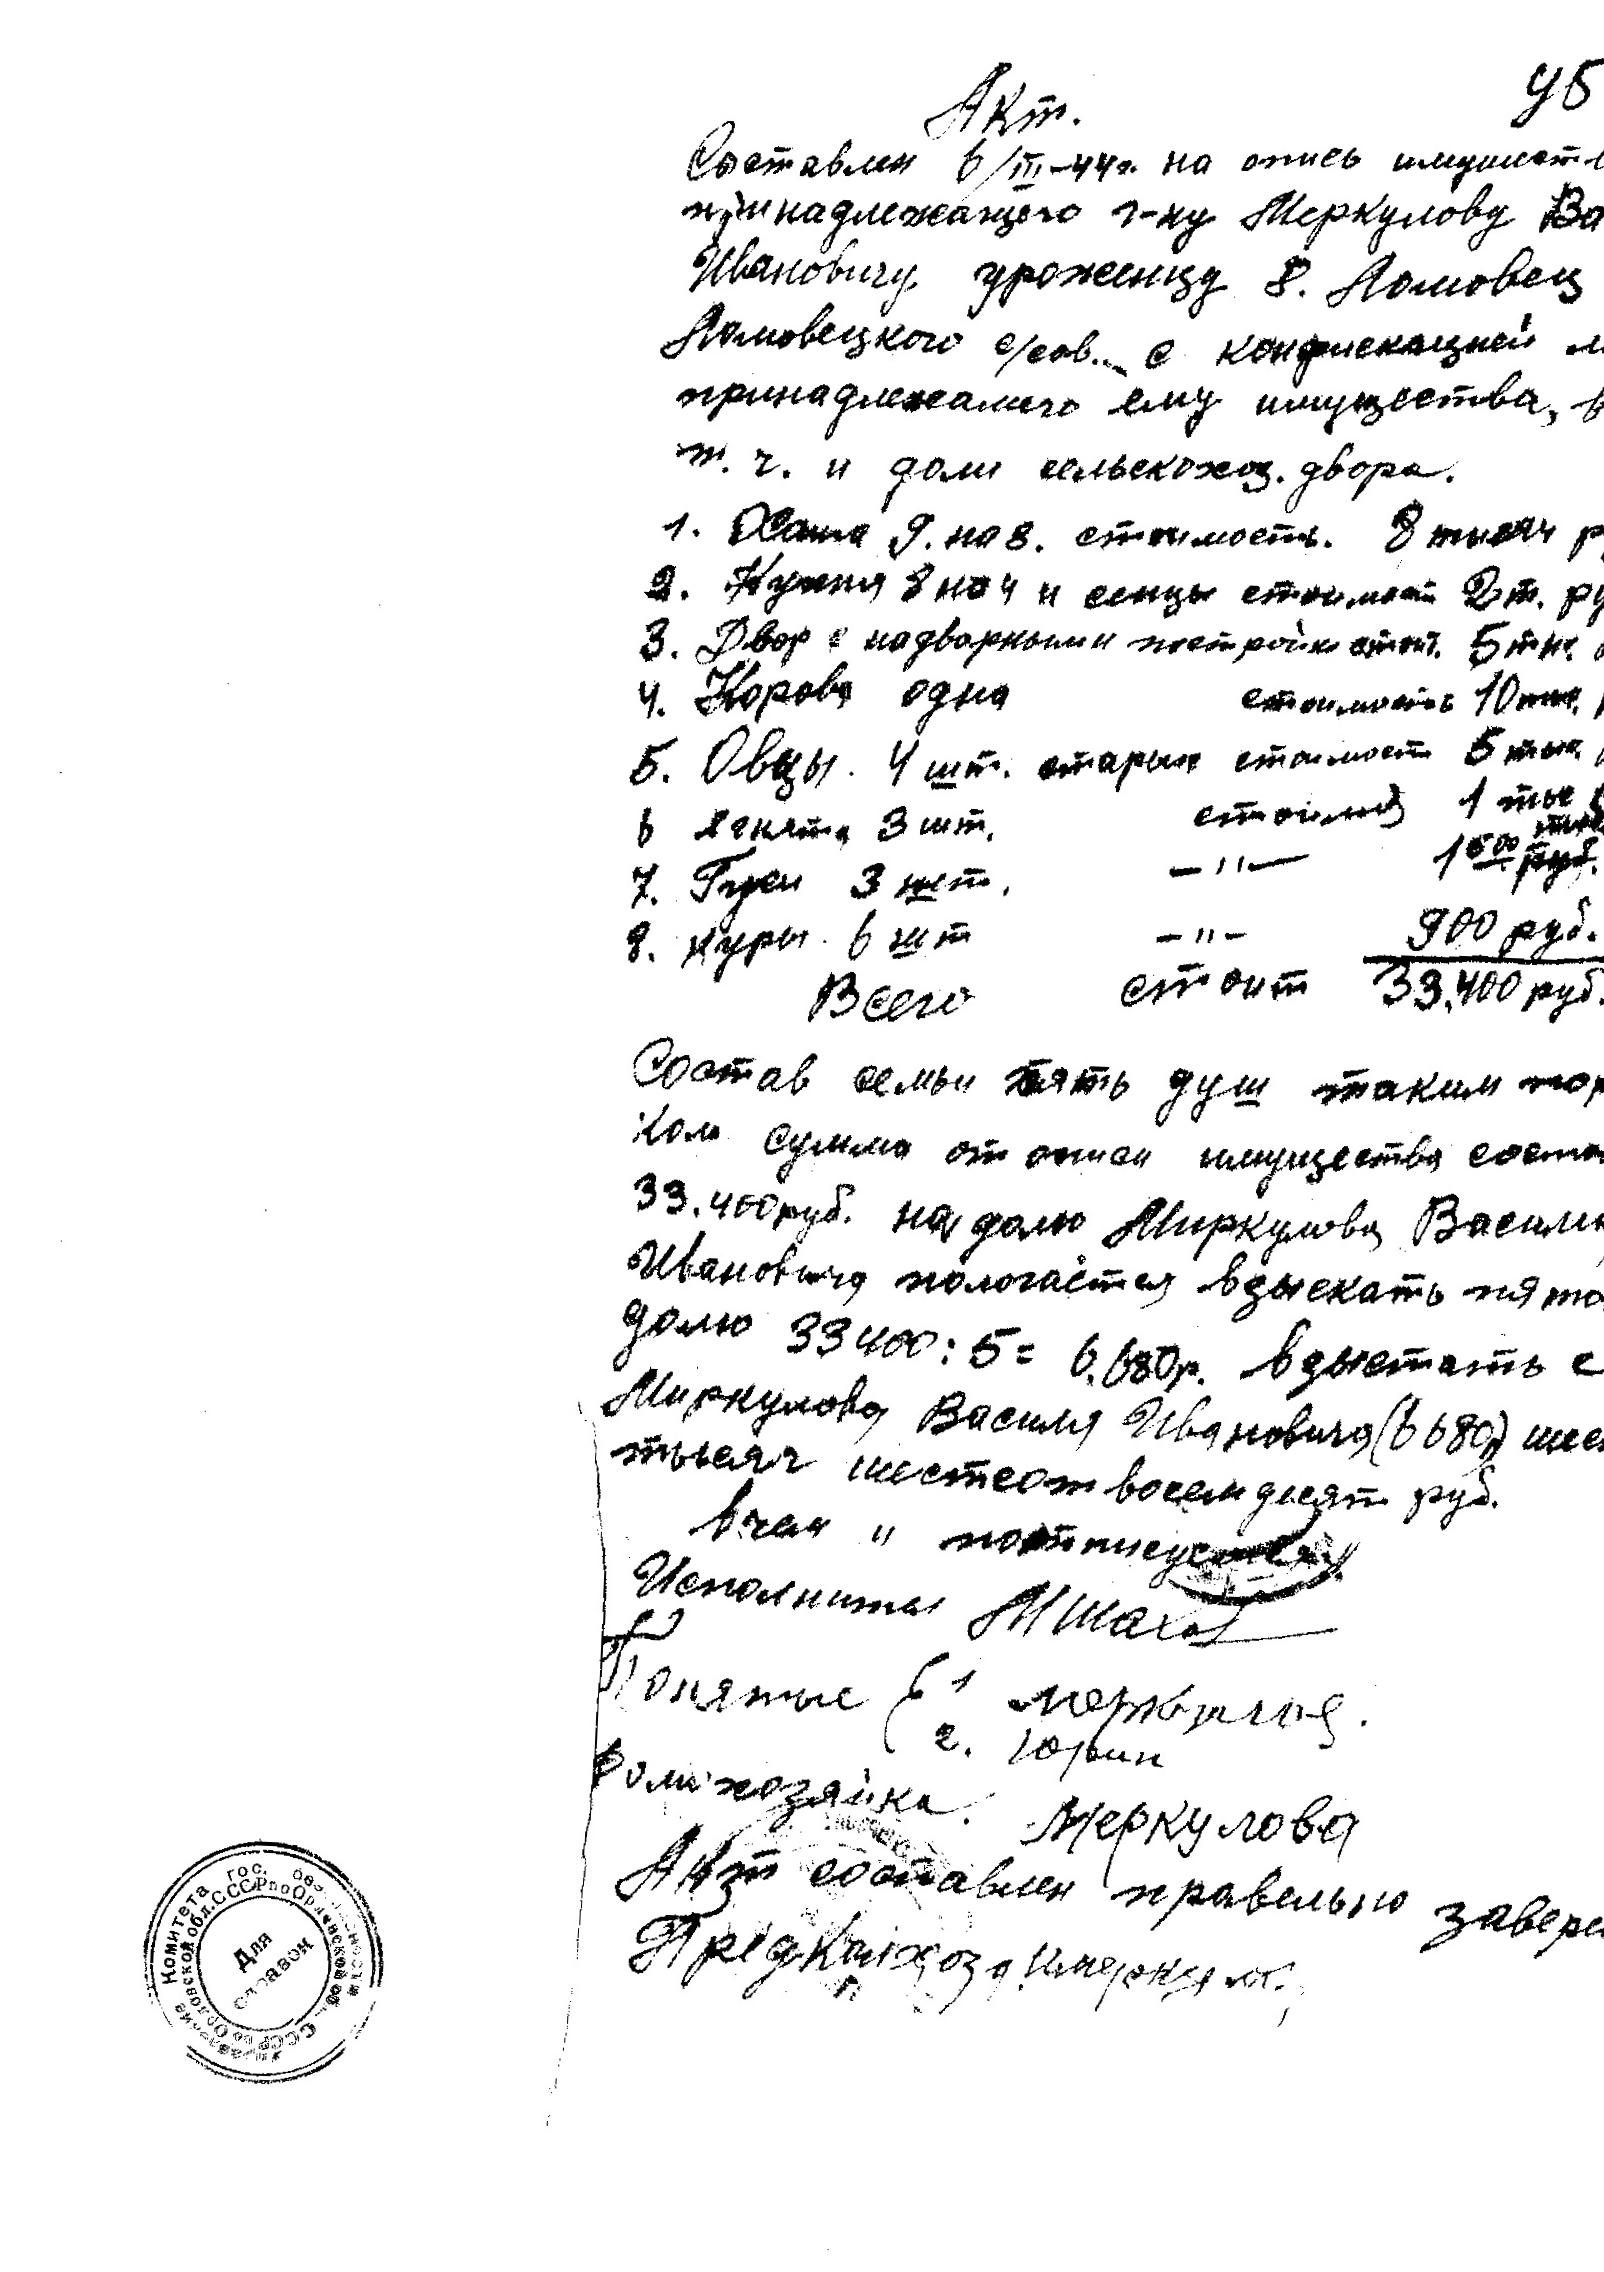 45
Акт.
Составлен 6/III-44г. на опись имущест
принадлежащего г-ну Меркулову Ва
Ивановичу уроженцу д. Ломовец
Ломовецкого с/сов. с конфискацией
принадлежащего ему имущества, в
т. ч. и доли сельскохоз. двора.
1. Хата 9. на 8. стоимость. 8 тысяч р
2. Кухня 8 на 4 и сенцы стоимост 2 т. ру
3. Двор с надворными постройк стоит. 5 тыс
4. Корова одна стоимость 10 тыс.
5. Овцы. 4 шт. старых стоимост 5 тыс
6 ягнята 3 шт. стоимос 1 тыс
7. Гуси 3 шт. —"— 1500 руб.
8. куры. 6 шт —"— 900 руб.
Всего стоит 33.400 руб.
Состав семьи пять душ таким пор
ком сумма от описи имущества соста
33.400 руб. на долю Миркулова Васили
Ивановича пологается взыскать пято
долю 33400:5= 6.680р. взыстать с
Миркулова Василя Ивановича (6680) шес
тысяч шестсот восемдисят руб.
в чем и
Исполнител МШахов
Понятые 1
2. Юрин
Домохозяйка. Меркулова
Акт составлен правельно завере
Предколхоза
Комитета гос.
Для справок